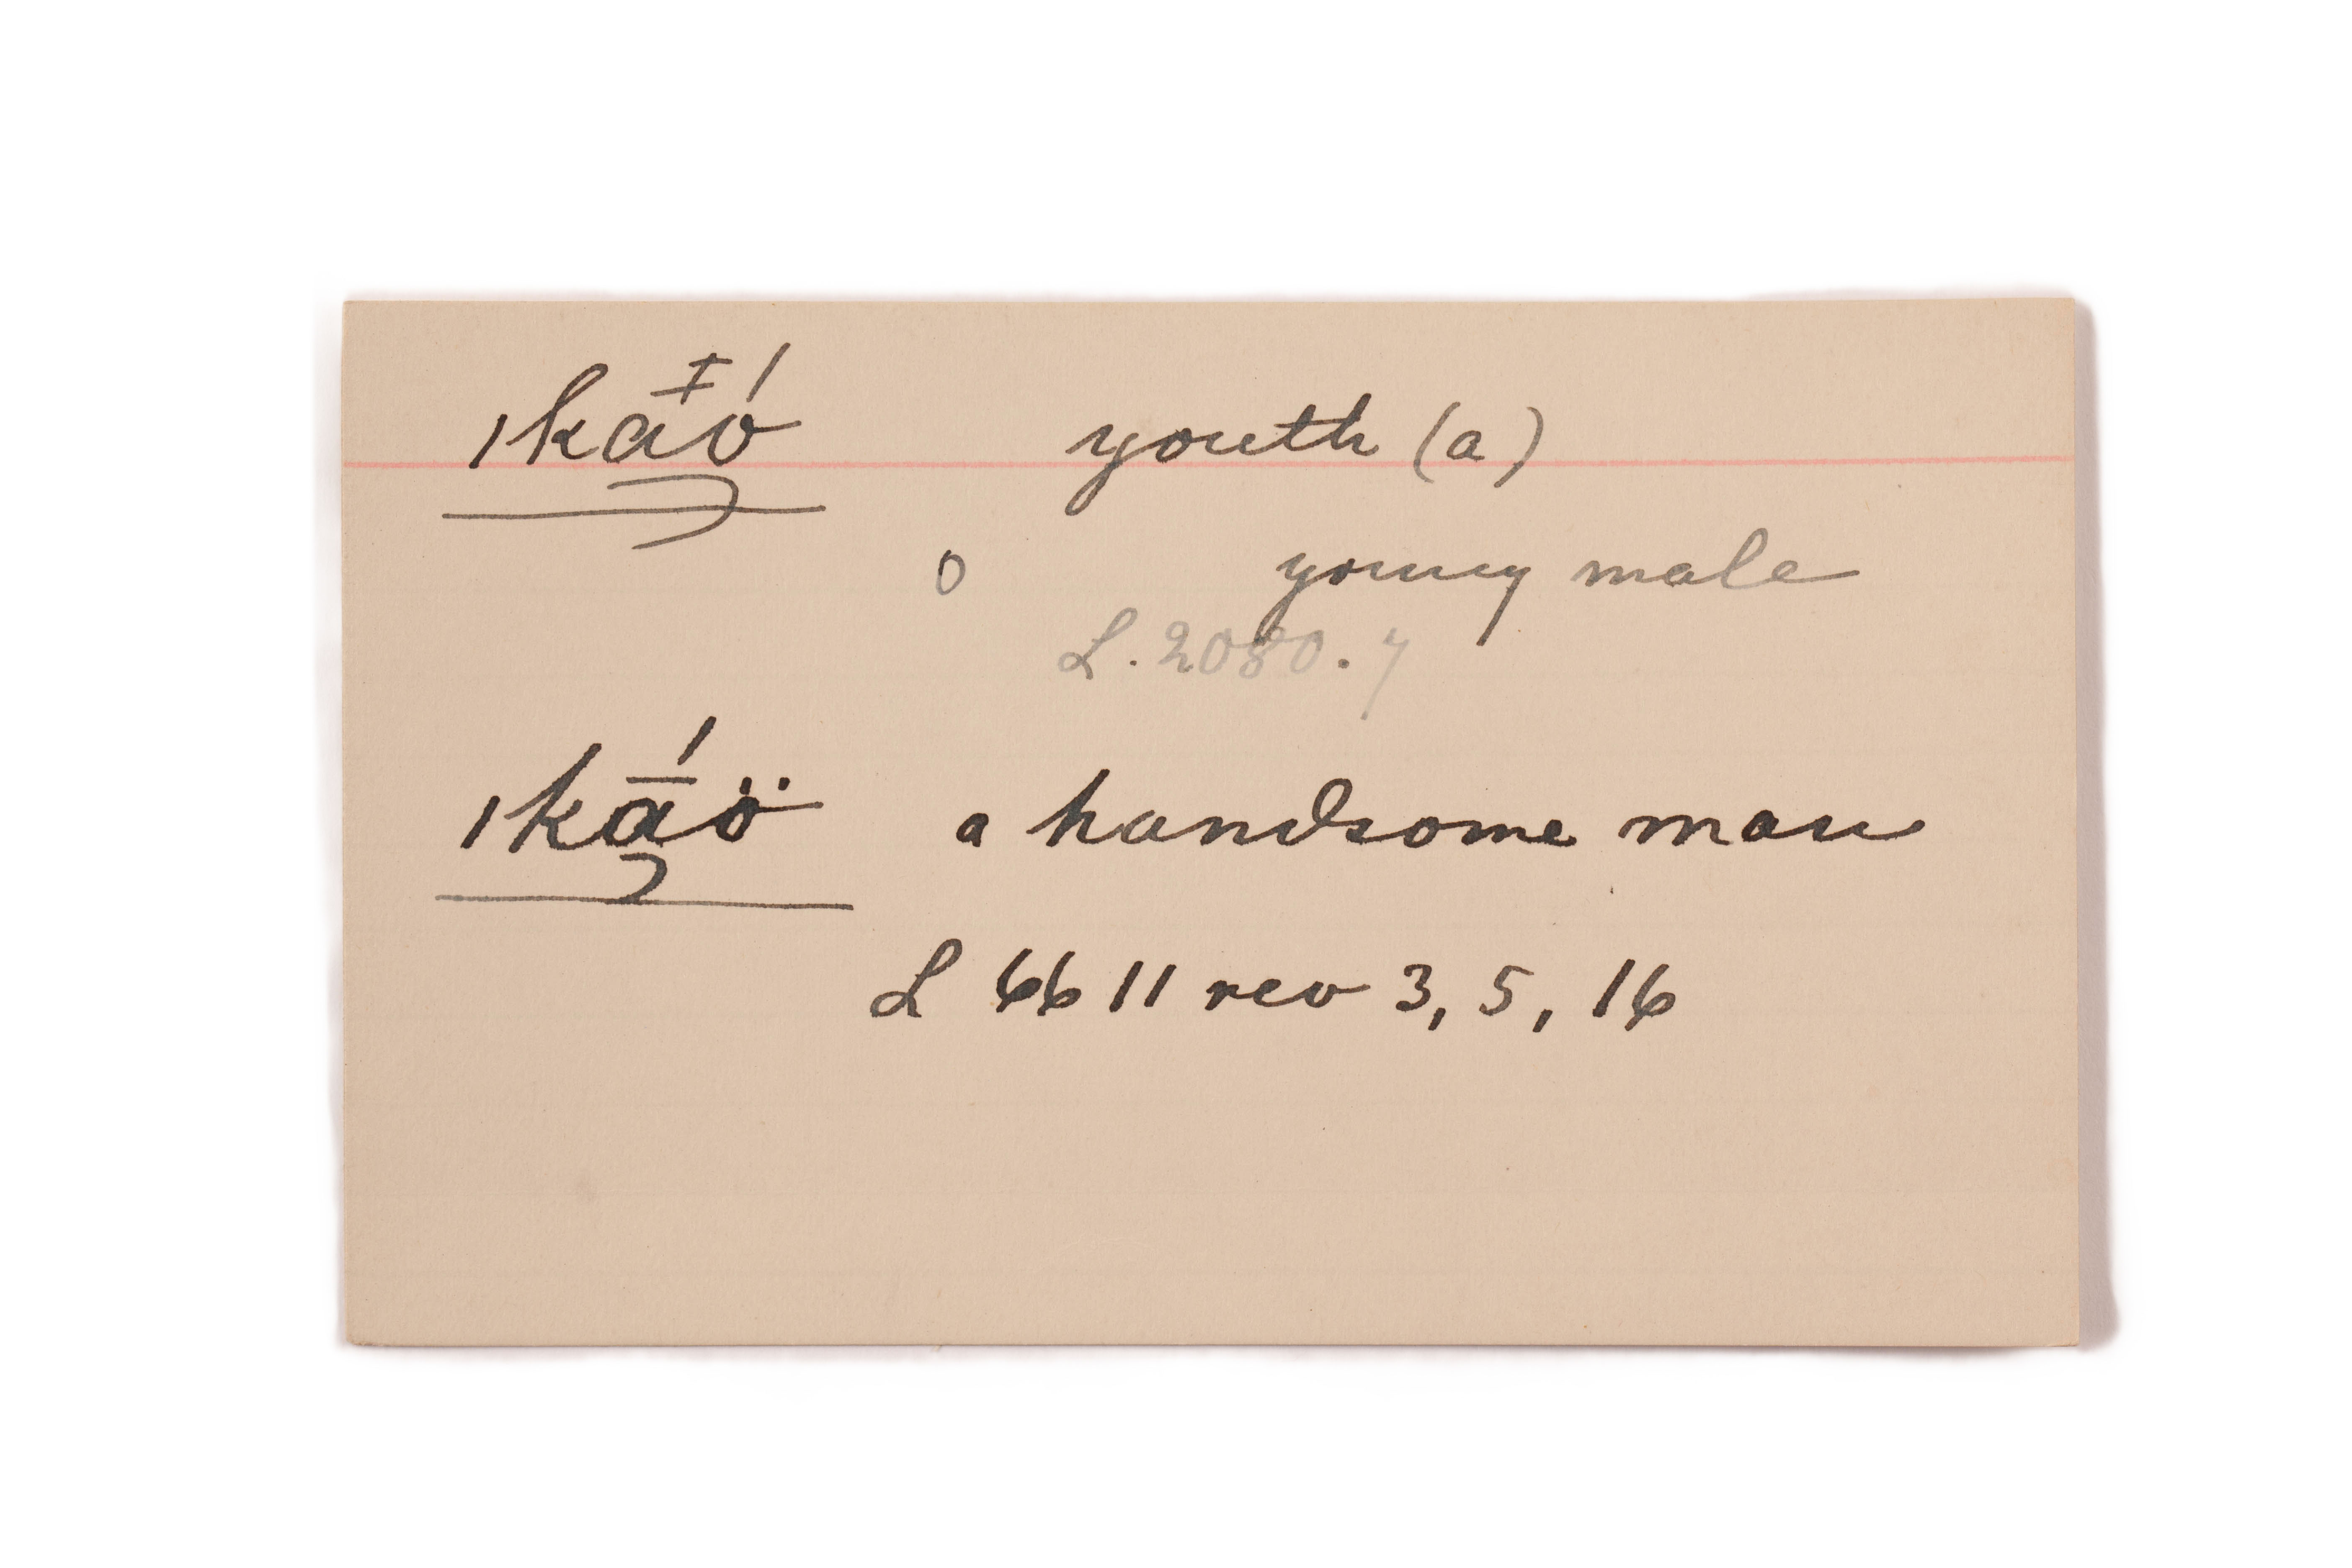 ıkā́ó youth (a)
o young male
L. 2080.7
ıkā́ö a handsome man
L 6611 rev 3, 5, 16